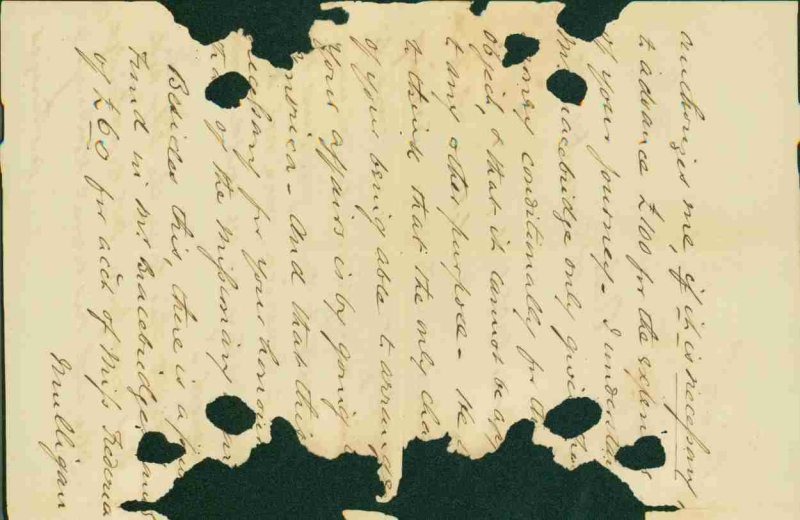 authorizes me, if it is necessary,
to advance £100 for the expenses
of your journey - I understand
Mr Bracebridge only gives
money conditionally for th
object, & that it cannot be ap
to any other purpose - He
to think that the only cha
of your being able to arrange
your affairs is by going
America - and that this
necessary for your honour
of the Missionary
Besides this, there is a
Fund in Mr Bracebridge's hands
of £60 for acct of Miss Frederica
Mulligan